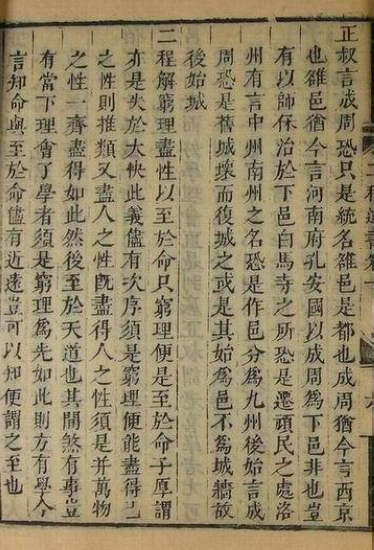 正叔言成周恐只是統名雒邑是都也成周猶今言西京
也雒邑猶今言河南府孔安國以成周爲下邑非也豈
有以師保治於下邑白馬寺之所恐是遷頑民之處洛
州有言中州南州之名恐是作邑分爲九州後始言成
周恐是舊城壞而復城之或是其始爲邑不爲城牆故
後始城
二程解窮理盡性以至於命只窮理便是至於命子厚謂
亦是失於大快此義儘有次序須是窮理便能盡得己
之性則推類又盡人之性既盡得人之性須是并萬物
之性一齊盡得如此然後至於天道也其閒煞有事豈
有當下理會了學者須是窮理爲先如此則方有學今
言知命與至於命儘有近遠豈可以知便謂之至也